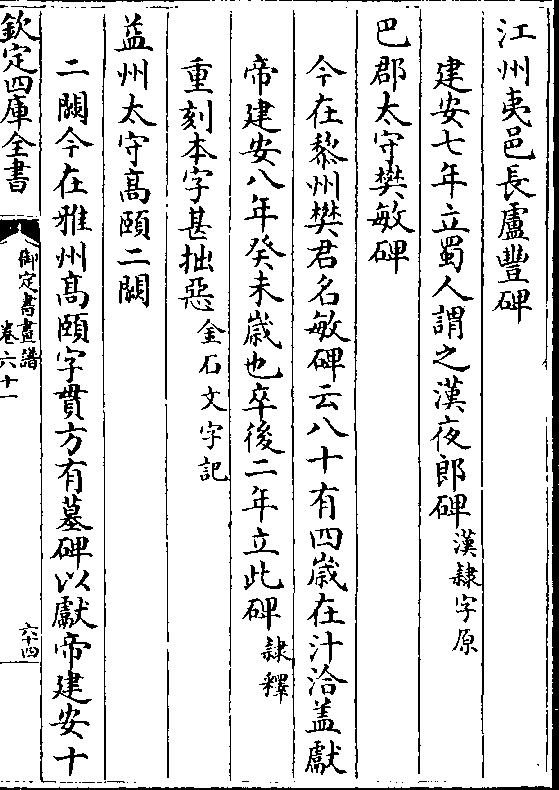 江州夷邑長盧豐碑
建安七年立蜀人謂之漢夜郎碑漢隸字原
巴郡太守樊敏碑
今在黎州樊君名敏碑云八十有四歲在汁洽盖獻
帝建安八年癸未歲也卒後二年立此碑隸釋
重刻本字甚拙惡金石文字記
益州太守髙頤二闕
二闕今在雅州髙頤字貫方有墓碑以獻帝建安十
欽定四庫全書
御定書畫譜
卷六十一
六十四